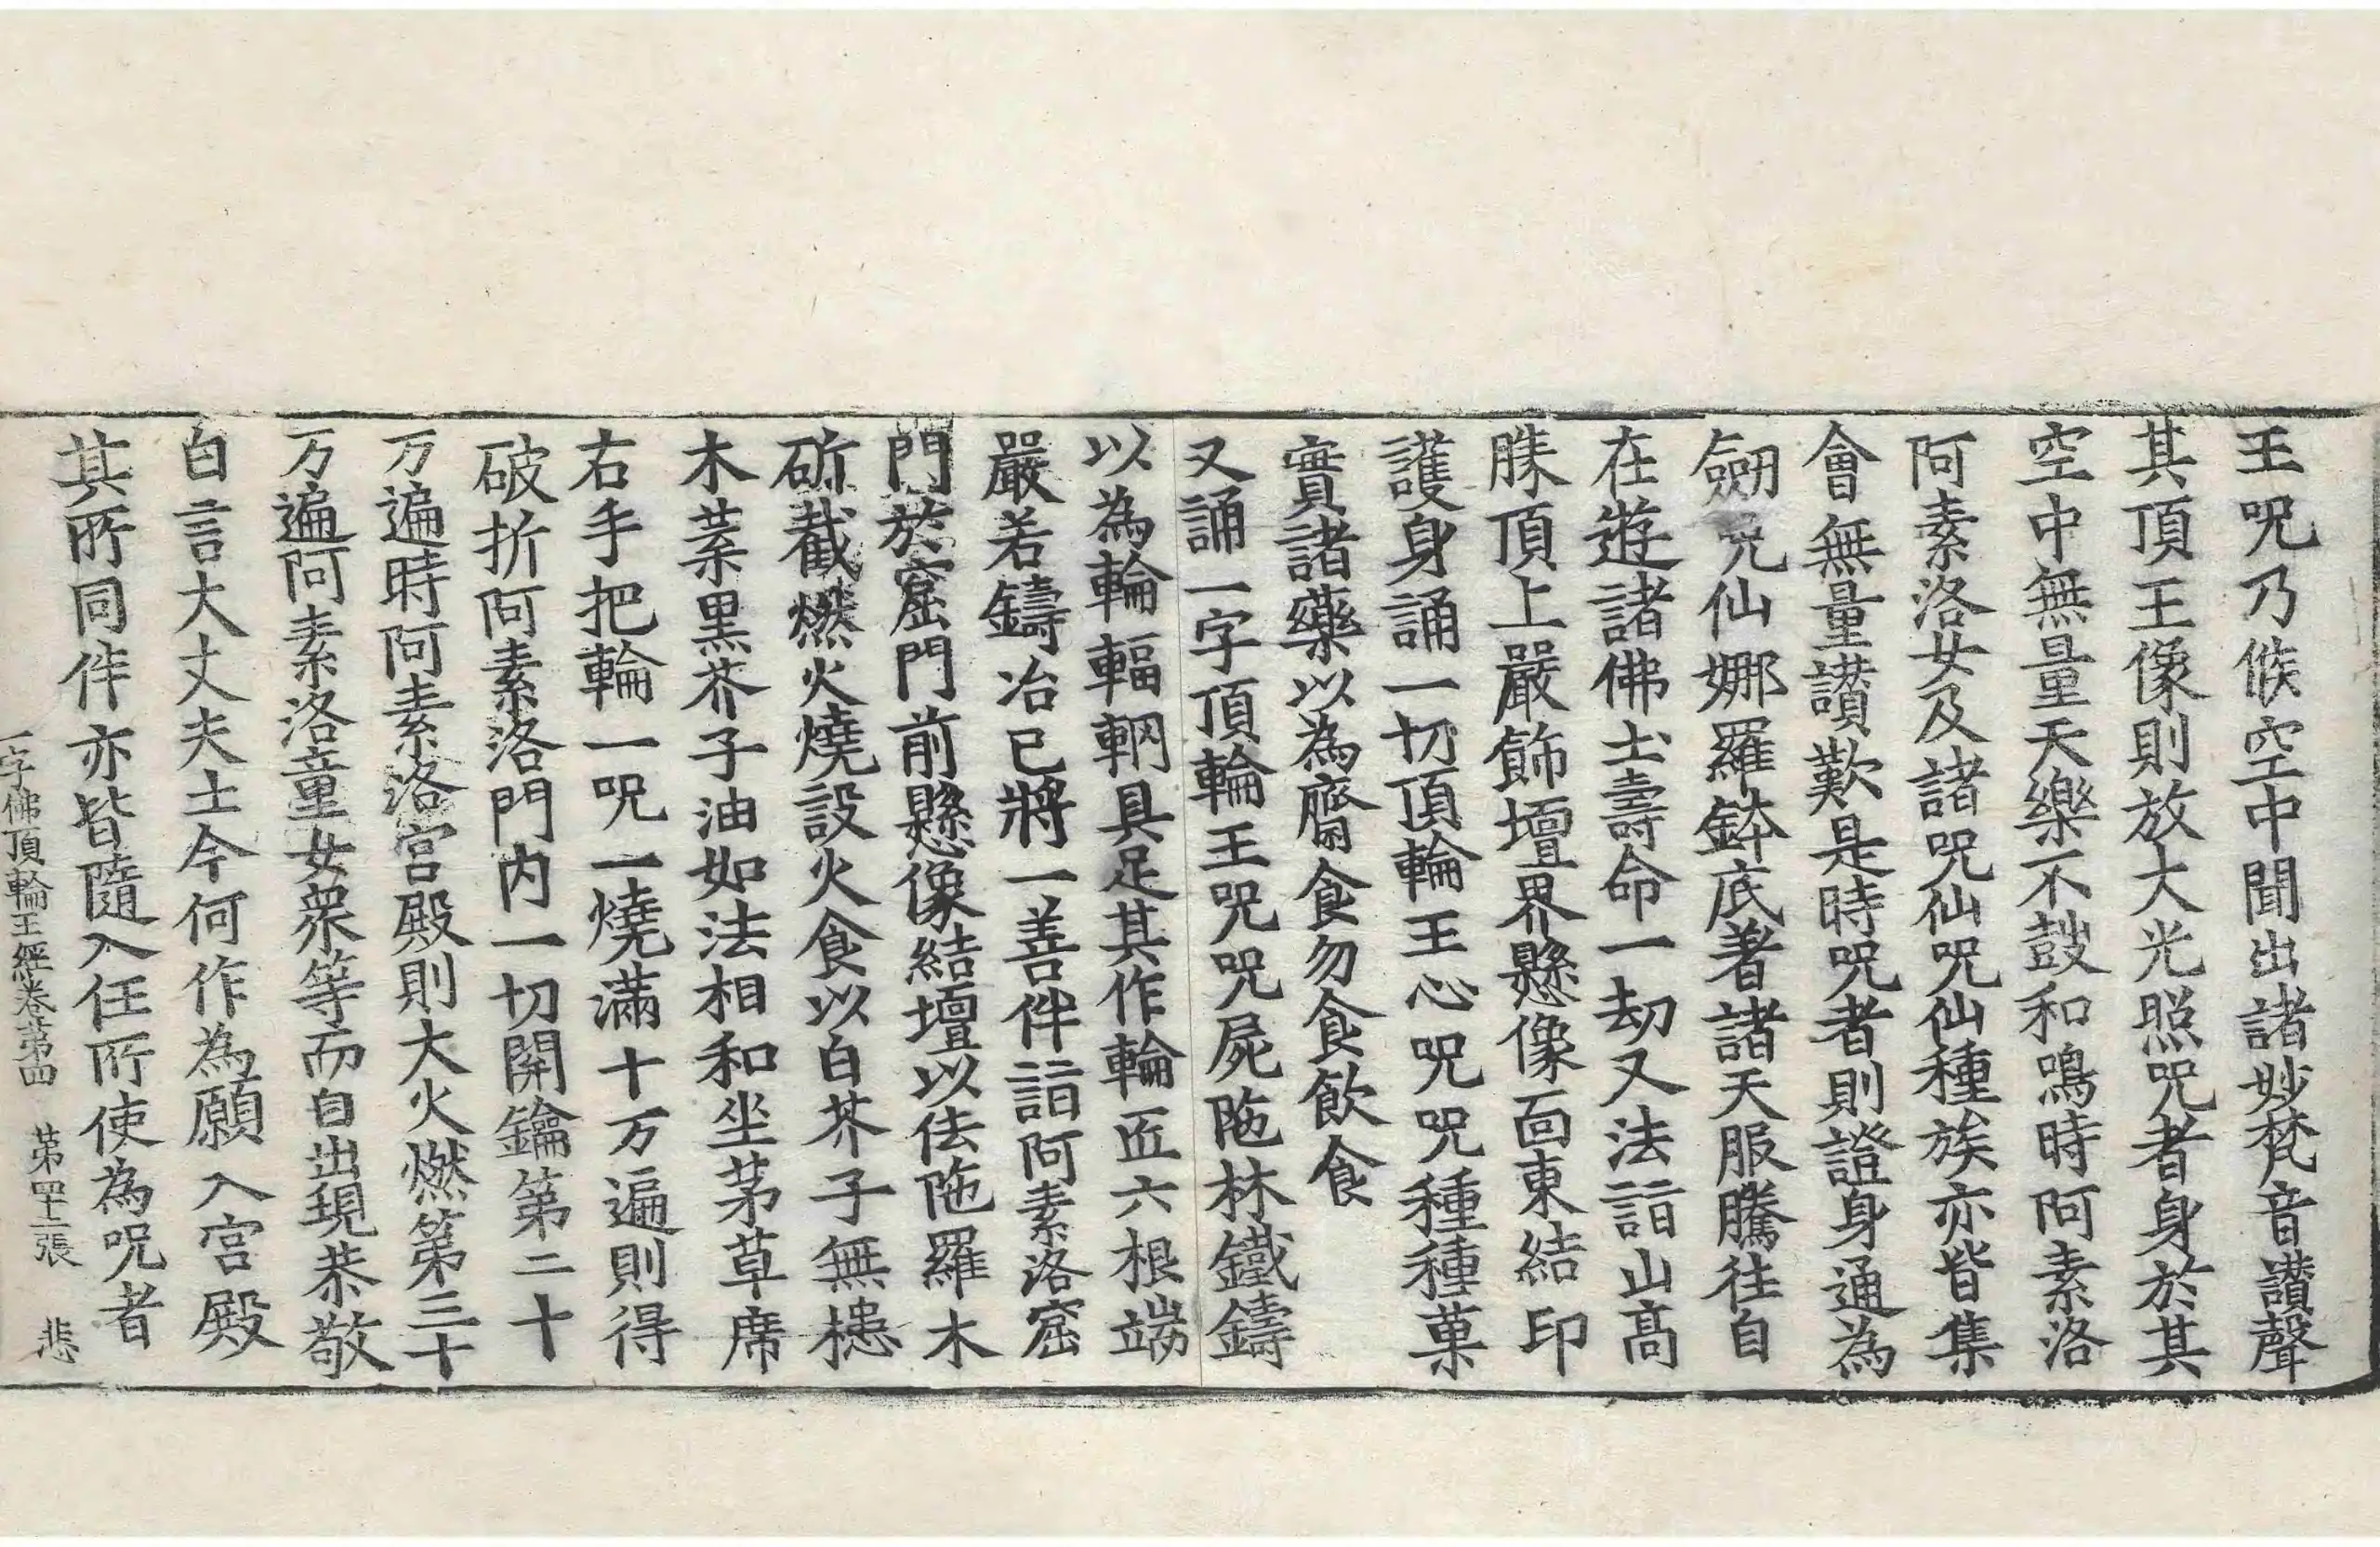 王呪乃候空中聞出諸妙梵音讃聲
其頂王像則放大光照呪者身於其
空中無量天樂不鼓和鳴時阿素洛
阿素洛女及諸呪仙呪仙種族亦皆集
會無量讃歎是時呪者則證身通為
劒呪仙娜羅鉢底著諸天服騰往自
在遊諸佛土壽命一劫又法詣山高
勝頂上嚴飾壇界懸像面東結印
護身誦一切頂輪王心呪呪種種菓
實諸藥以為齋食勿食飲食
又誦一字頂輪王呪呪屍陁林鐵鑄
以為輪輻輞具足其作輪匠六根端
嚴若鑄冶已將一善伴詣阿素洛窟
門於窟門前懸像結壇以佉陁羅木
斫截燃火燒設火食以白芥子無槵
木葉黒芥子油如法相和坐茅草席
右手把輪一呪一燒滿十万遍則得
破折阿素洛門内一切開鑰第二十
万遍時阿素洛宮殿則大火燃第三十
万遍阿素洛童女衆等而自出現恭敬
白言大丈夫士今何作為願入宮殿
其所同伴亦皆隨入任所使為呪者
一字佛頂輪王經卷第四 第四十二張 悲